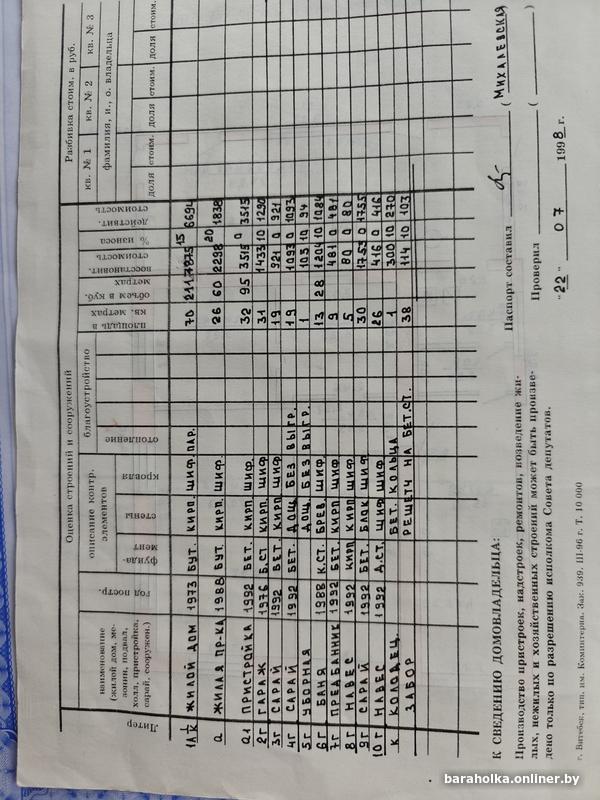 Оценка строений и сооружений
Разбивка стоим. в руб.
Литер
наименование (жилой дом, мезонин, подвал, холл, пристройка, сарай, сооружен.)
год постр.
описание контр. элементов
фундамент
стены
кровля
благоустройство
отопление
площадь в кв. метрах
объем в куб. метрах
восстановит. стоимость
% износа
действит. стоимость
кв. № 1 кв. № 2 кв. № 3
фамилия, и., о. владельца
доля стоим. доля стоим. доля стоим.
ЖИЛОЙ ДОМ 1973 БУТ. КИРП. ШИФ. ПАР. 70 211 7875 15 6694
а ЖИЛАЯ ПР-КА 1988 БУТ. КИРП. ШИФ. 26 60 2298 20 1838
а1 ПРИСТРОЙКА 1992 БЕТ. КИРП. ШИФ. 32 95 3515 0 3515
2г ГАРАЖ 1976 Б.СТ. КИРП. ШИФ. 31 1433 10 1290
3г САРАЙ 1992 БЕТ. КИРП. ШИФ. 19 921 0 921
4г САРАЙ 1992 БЕТ. ДОЩ. БЕЗ ВЫГР. 19 1093 0 1093
5г УБОРНАЯ ДОЩ. БЕЗ ВЫГР. 1 105 10 94
6г БАНЯ 1988 К.СТ. БРЕВ. ШИФ. 13 28 1204 10 1084
7г ПРЕДБАННИК 1992 БЕТ. КИРП. ШИФ. 9 481 0 481
8г НАВЕС 1992 КИРП. КИРП. ШИФ. 5 80 0 80
9г САРАЙ 1992 БЕТ. БЛОК. ШИФ. 30 1755 0 1755
10г НАВЕС 1992 Д.СТ. ШИФ. ШИФ. 26 416 0 416
К КОЛОДЕЦ. БЕТ. КОЛЬЦА 1 300 10 270
ЗАБОР РЕШЕТЧ НА БЕТ. СТ. 38 114 10 103
К СВЕДЕНИЮ ДОМОВЛАДЕЛЬЦА:
Производство пристроек, надстроек, ремонтов, возведение жи-
лых, нежилых и хозяйственных строений может быть произве-
дено только по разрешению исполкома Совета депутатов.
г. Витебск, тип. им. Коминтерна. Зак. 939. III-96 г. Т. 10 000
Паспорт составил ( МИХАЛЕВСКАЯ
Проверил (
"22" 07 1998 г.
baraholka.onliner.by